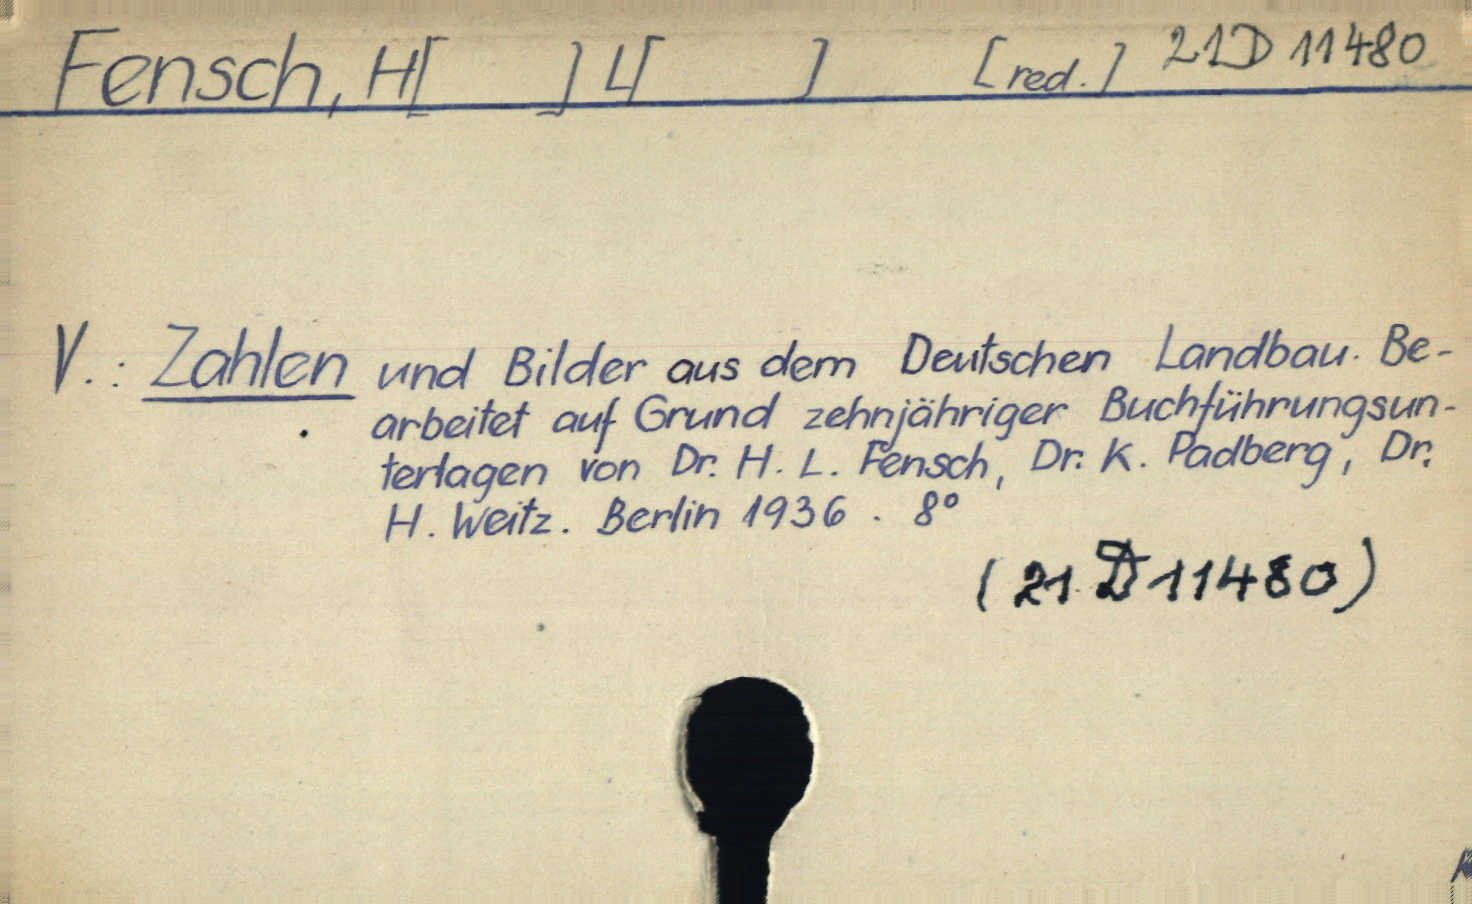 Fensch, H[ ] L[ ] [red.] 21D 11480
V.: Zahlen und Bilder aus dem Deutschen Landbau. Be-
arbeitet auf Grund zehnjähriger Buchführungsun-
terlagen von Dr. H. L. Fensch, Dr. K. Padberg, Dr.
H. Weitz. Berlin 1936. 8°
(21 D 11480)